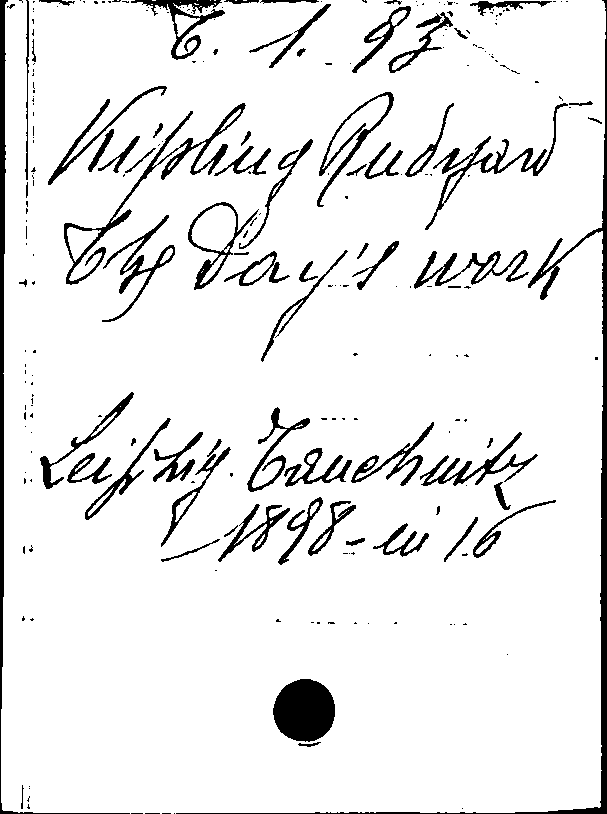 6. 1. 93
Kipling Rudyard
The Day's work
Leipzig. Tauchnitz
1898 - in 16